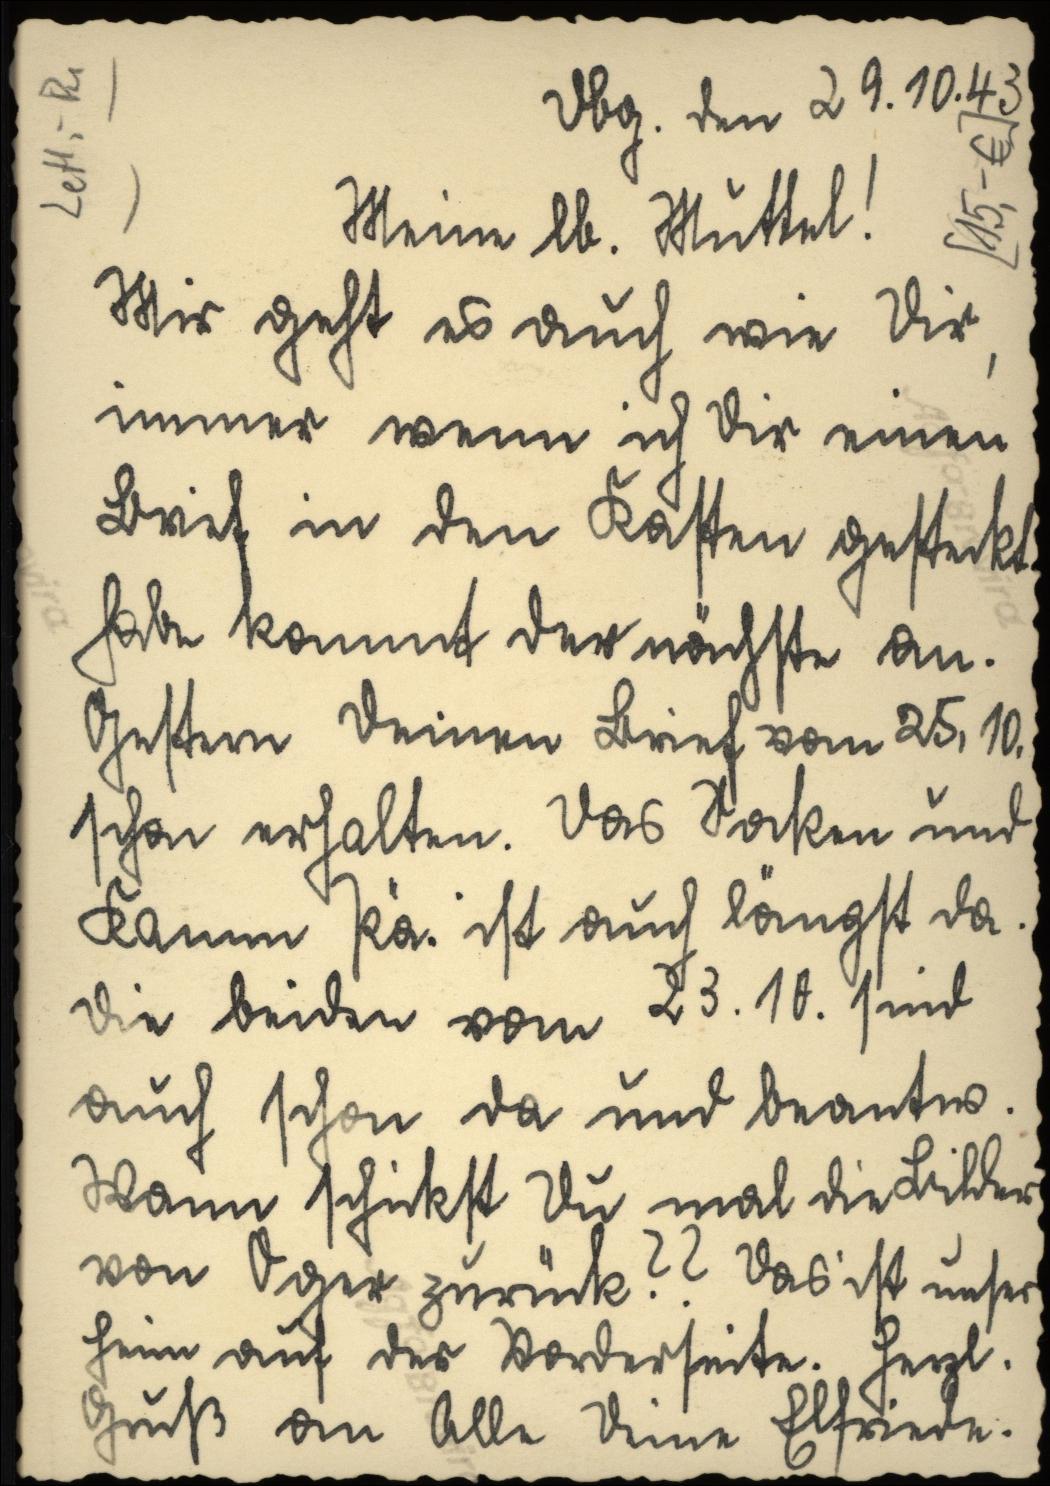 Dbg. den 29.10.43
Meine lb. Muttel!
Mir geht es auch wie Dir,
immer wenn ich Dir einen
Brief in den Kasten gesteckt
habe kommt der nächste an.
Gestern Deinen Brief vom 25.10.
schon erhalten. Das Socken und
Kamm Pä. ist auch längst da.
Die beiden vom 23.10. sind
auch schon da und beantw.
Wann schickst Du mal die Bilder
von Oger zurück?? Das ist unser
Heim auf der Vorderseite. Herzl.
Gruß an Alle Deine Elfriede.
[15,-€]